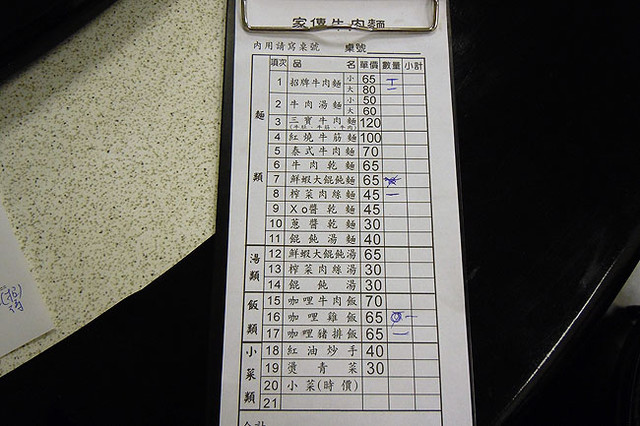 家傳牛肉麵
內用請寫桌號 桌號
項次 品名 單價 數量 小計
麵類
1 招牌牛肉麵 小 65
大 80 一
2 牛肉湯麵 小 50
大 60
3 三寶牛肉麵 120
4 紅燒牛筋麵 100
5 泰式牛肉麵 70
6 牛肉乾麵 65
7 鮮蝦大餛飩麵 65
8 榨菜肉絲麵 45 一
9 Xo醬乾麵 45
10 蔥醬乾麵 30
11 餛飩湯麵 40
湯類
12 鮮蝦大餛飩湯 65
13 榨菜肉絲湯 30
14 餛飩湯 30
飯類
15 咖哩牛肉飯 70
16 咖哩雞飯 65 一
17 咖哩豬排飯 65 一
小菜類
18 紅油炒手 40
19 燙青菜 30
20 小菜(時價)
21
合計